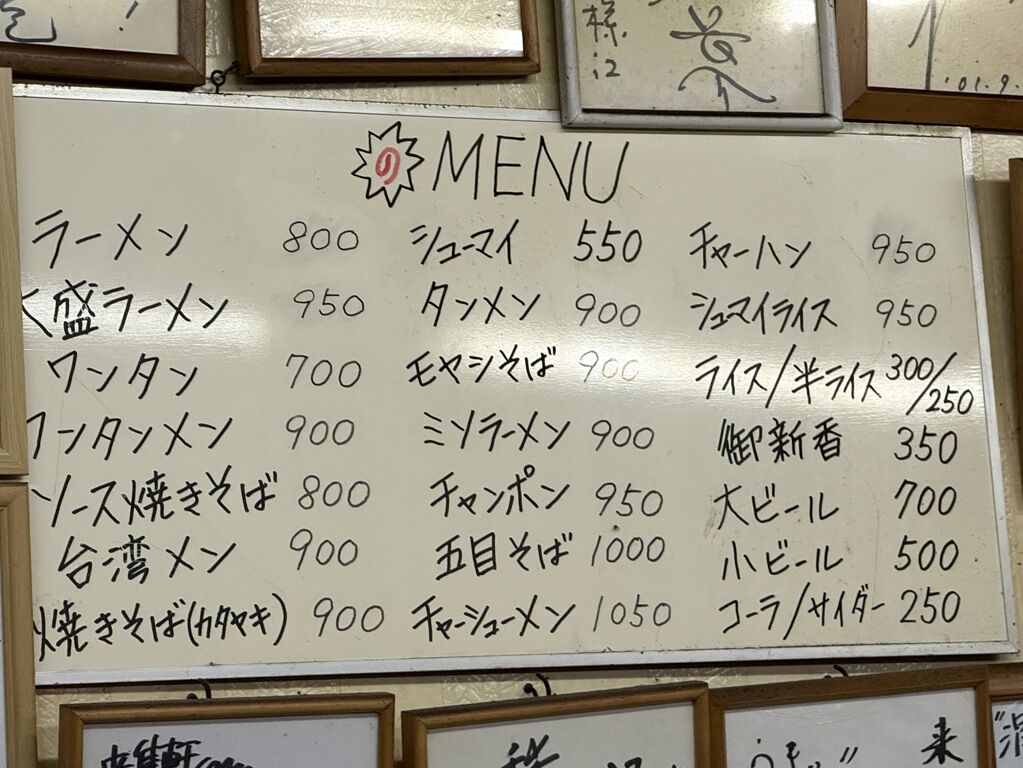 の MENU
ラーメン 800
盛ラーメン 950
ワンタン 700
ワンタンメン 900
ソース焼きそば 800
台湾メン 900
焼きそば(カタヤキ) 900
シューマイ 550
タンメン 900
モヤシそば 900
ミソラーメン 900
チャンポン 950
五目そば 1000
チャーシューメン 1050
チャーハン 950
シュマイライス 950
ライス/半ライス 300/250
御新香 350
大ビール 700
小ビール 500
コーラ/サイダー 250
様江
'01.9.
来